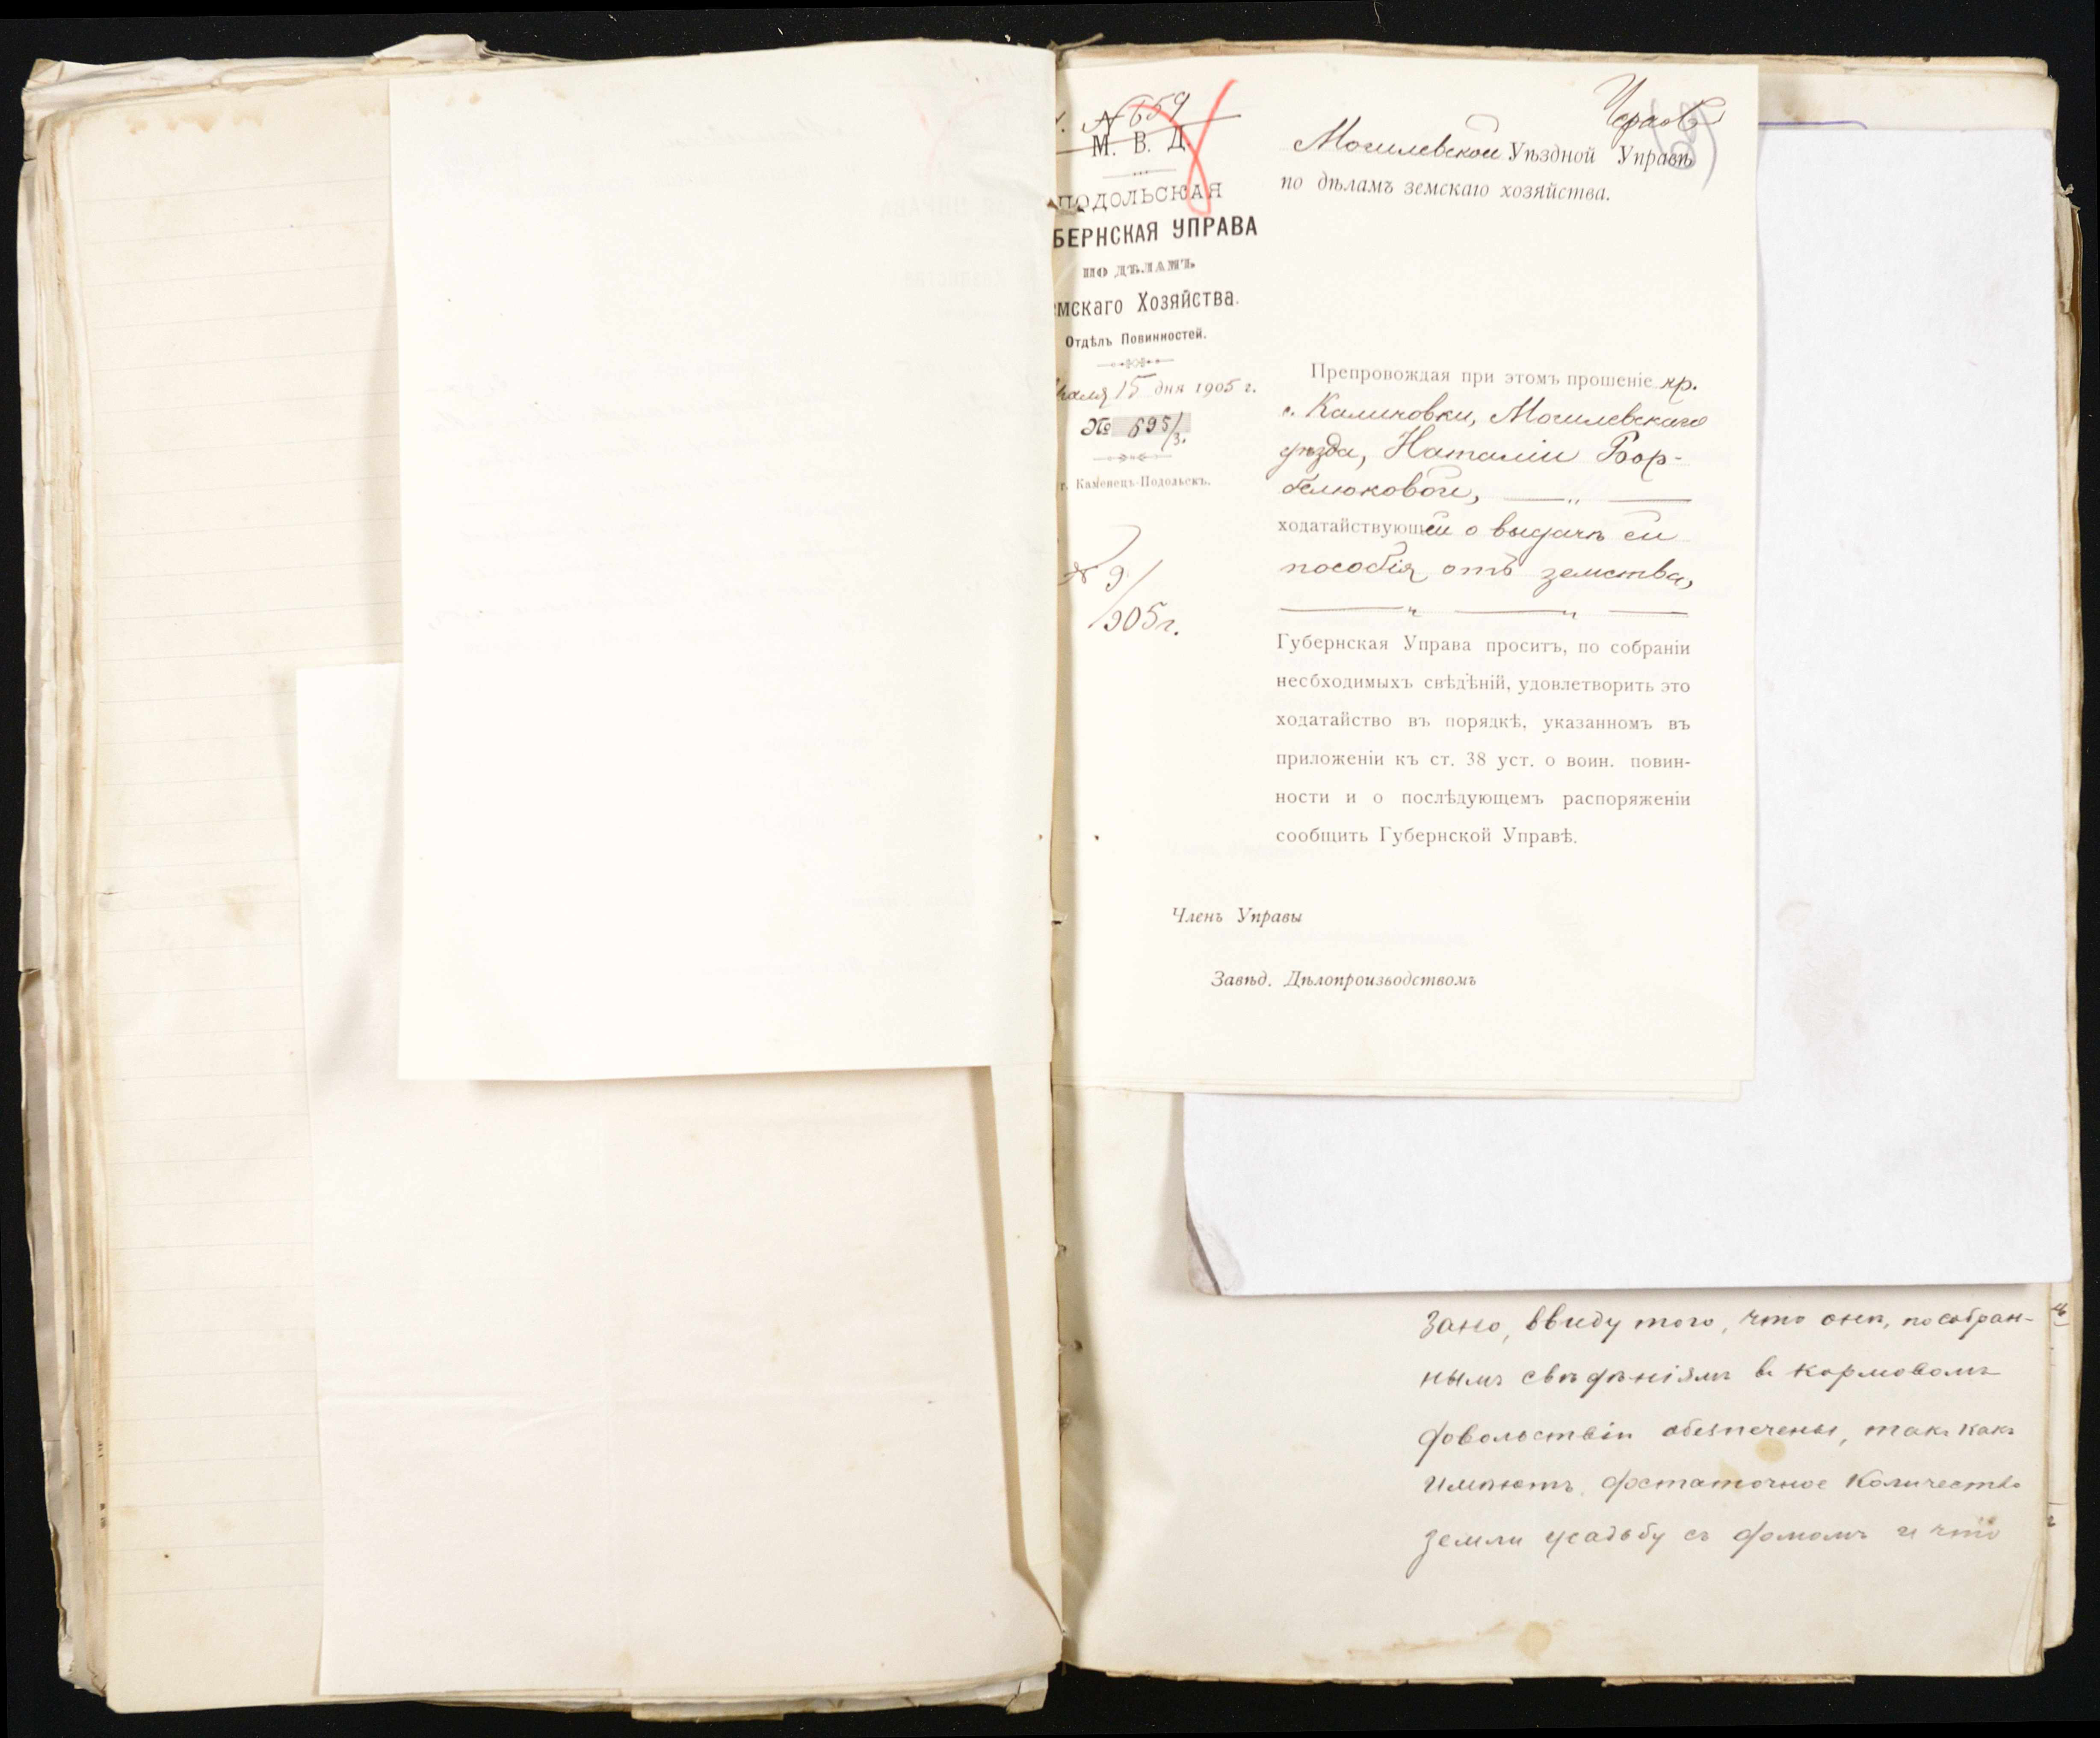 № 659
М. В. Д.
ПОДОЛЬСКАЯ
БЕРНСКАЯ УПРАВА
ПО ДѢЛАМЪ
мскаго Хозяйства.
Отдѣлъ Повинностей.
15 дня 1905 г.
№ 695/3.
г. Каменецъ-Подольскъ.
№ 9/
905 г.
Могилевской Уѣздной Управѣ
по дѣламъ земскаго хозяйства.
Препровождая при этомъ прошеніе кр.
с. Калиновки, Могилевскаго
уѣзда, Наталіи Вор-
белюковой, — „ —
ходатайствующей о выдачѣ ей
пособія отъ земства,
— „ — „ —
Губернская Управа проситъ, по собраніи
несбходимыхъ свѣдѣній, удовлетворить это
ходатайство въ порядкѣ, указанномъ въ
приложеніи къ ст. 38 уст. о воин. повин-
ности и о послѣдующемъ распоряженіи
сообщить Губернской Управѣ.
Членъ Управы
Завѣд. Дѣлопроизводствомъ
зано, ввиду того, что они, по собран-
нымъ свѣдѣніямъ въ кормовомъ
довольствіи обезпечены, такъ какъ
имѣютъ достаточное количество
земли усадьбу съ домомъ и что